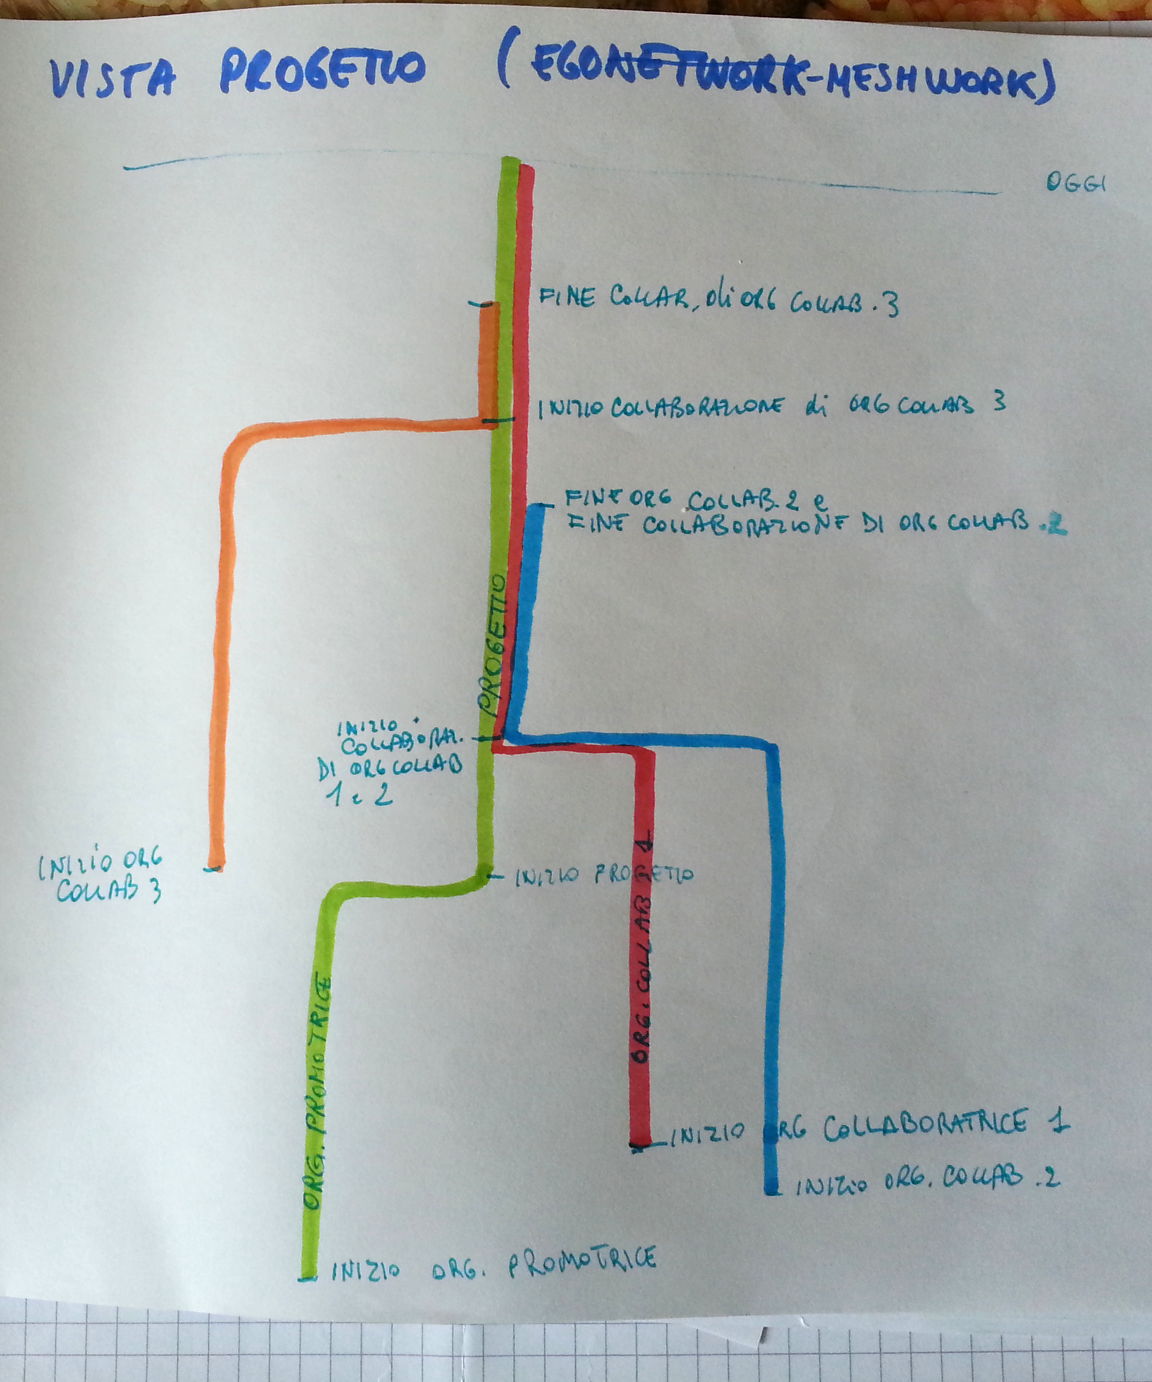 VISTA PROGETTO (EGONETWORK-MESHWORK)
OGGI
FINE COLLAB. di ORG COLLAB. 3
INIZIO COLLABORAZIONE di ORG COLLAB 3
FINE ORG COLLAB. 2 e
FINE COLLABORAZIONE DI ORG COLLAB. 2
PROGETTO
INIZIO
COLLABORAZ.
DI ORG COLLAB
1 e 2
INIZIO ORG
COLLAB 3
INIZIO PROGETTO
ORG. COLLAB 1
ORG. PROMOTRICE
INIZIO ORG COLLABORATRICE 1
INIZIO ORG. COLLAB. 2
INIZIO ORG. PROMOTRICE